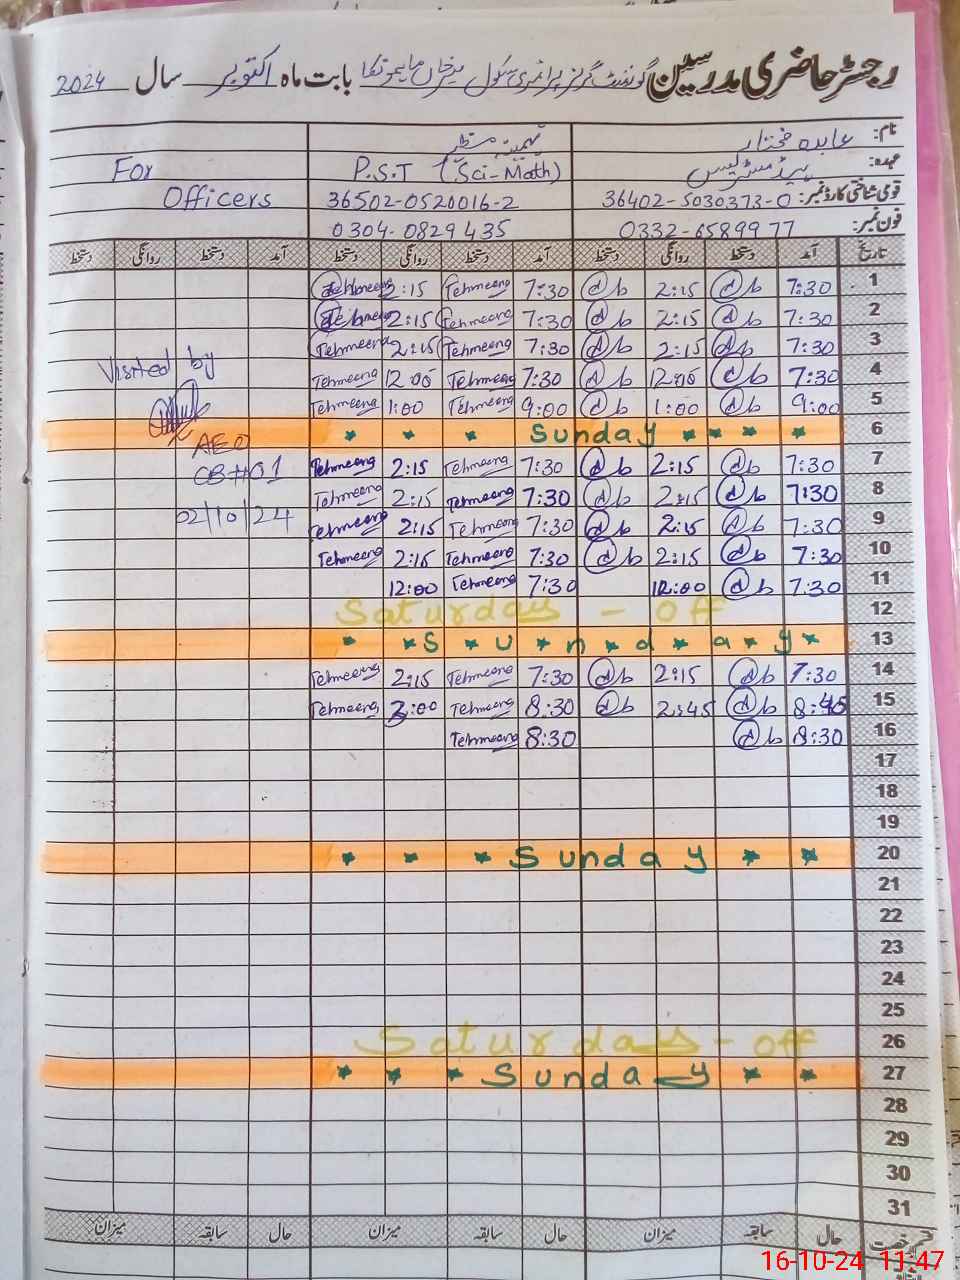 رجسٹر حاضری مدرسین گورنمنٹ گرلز پرائمری سکول بابت ماہ اکتوبر سال 2024
نام: عابدہ مختار تہمینہ
عہدہ: ہیڈ مسٹریس P.S.T (Sci-Math) For
قومی شناختی کارڈ نمبر: 36402-5030373-0 36502-0520016-2 Officers
فون نمبر: 0332-6589977 0304-0829435
تاریخ آمد دستخط روانگی دستخط آمد دستخط روانگی دستخط آمد دستخط روانگی دستخط
1 7:30 2:15 7:30 Tehmeena 2:15 Tehmeena
2 7:30 2:15 7:30 Tehmeena 2:15 Tehmeena
3 7:30 2:15 7:30 Tehmeena 2:15 Tehmeena
4 7:30 12:00 7:30 Tehmeena 12:00 Tehmeena Visited by
5 9:00 1:00 9:00 Tehmeena 1:00 Tehmeena
6 Sunday AEO
7 7:30 2:15 7:30 Tehmeena 2:15 Tehmeena CB#01
8 7:30 2:15 7:30 Tehmeena 2:15 Tehmeena 02/10/24
9 7:30 2:15 7:30 Tehmeena 2:15 Tehmeena
10 7:30 2:15 7:30 Tehmeena 2:15 Tehmeena
11 7:30 12:00 7:30 Tehmeena 12:00
12 Saturdays - off
13 Sunday
14 7:30 2:15 7:30 Tehmeena 2:15 Tehmeena
15 8:45 2:45 8:30 Tehmeena 3:00 Tehmeena
16 8:30 8:30 Tehmeena
17
18
19
20 Sunday
21
22
23
24
25
26 Saturdays - off
27 Sunday
28
29
30
31
حال سابقہ میزان حال سابقہ میزان حال سابقہ میزان
16-10-24 11:47